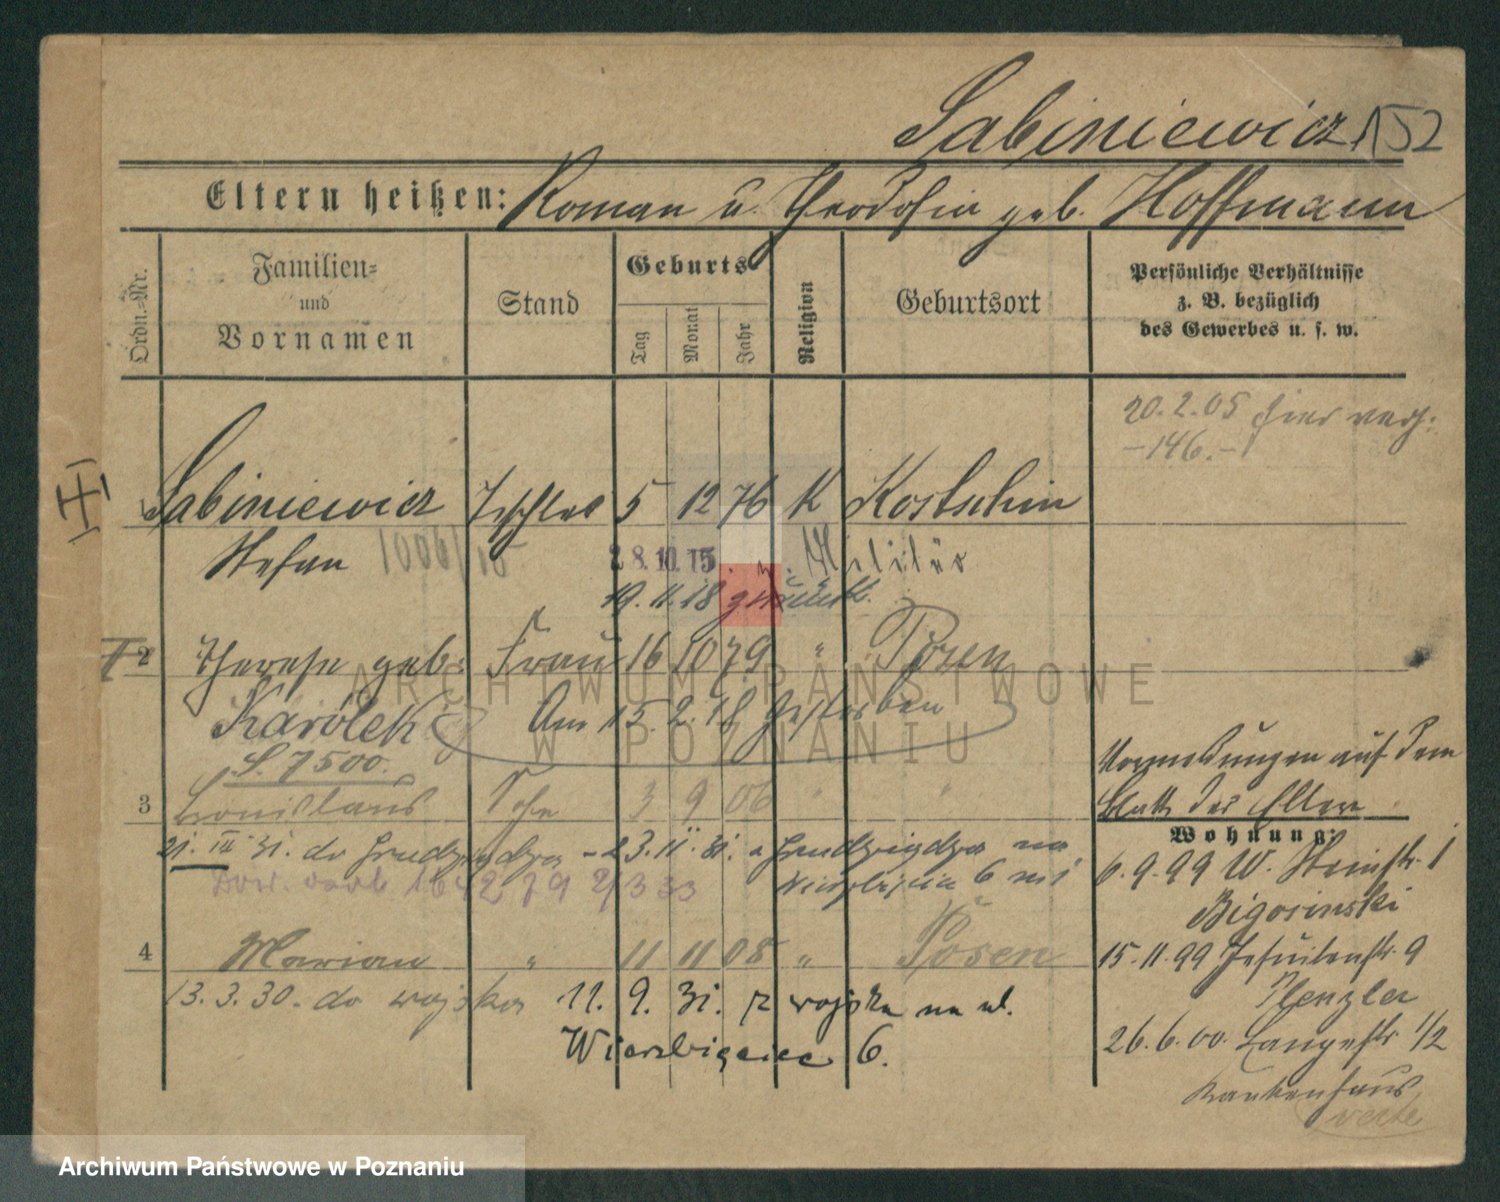 Sabiniewicz 152
Eltern heißen: Roman u. Theodosia geb. Hoffmann
Ordn.-Nr.
Familien-
und
Vornamen
Stand
Geburts-
Tag
Monat
Jahr
Religion
Geburtsort
Persönliche Verhältnisse
z. B. bezüglich
des Gewerbes u. s. w.
20.2.05 hier
-146.-
1 Sabiniewicz Tischler 5 12 76 K Kostschin
Stefan 1006/15 28.10.15. z. Militär
19.11.18 zurück.
2 Therese geb. Frau 16 10 79 " Posen
Karolek Am 15.2.18 gestorben
S. 7500.
3 Bronislaus Sohn 3 9 06 " "
Vormerkungen auf dem
Blatt der Eltern
Wohnung:
21. III 31. do Grudziądza - 23.II. 31. z Grudziądza na
6 m 1
6.9.99 W. Steinstr. 1
Bigosinski
4 Marian " 11 11 08 " Posen
15.11.99 Jesuitenstr. 9
13.3.30. do wojska 11. 9. 31. z wojska na ul.
Wierzbięcice 6.
26.6.00. Langestr. 1/2
Krankenhaus
verte
ARCHIWUM PAŃSTWOWE
W POZNANIU
Archiwum Państwowe w Poznaniu